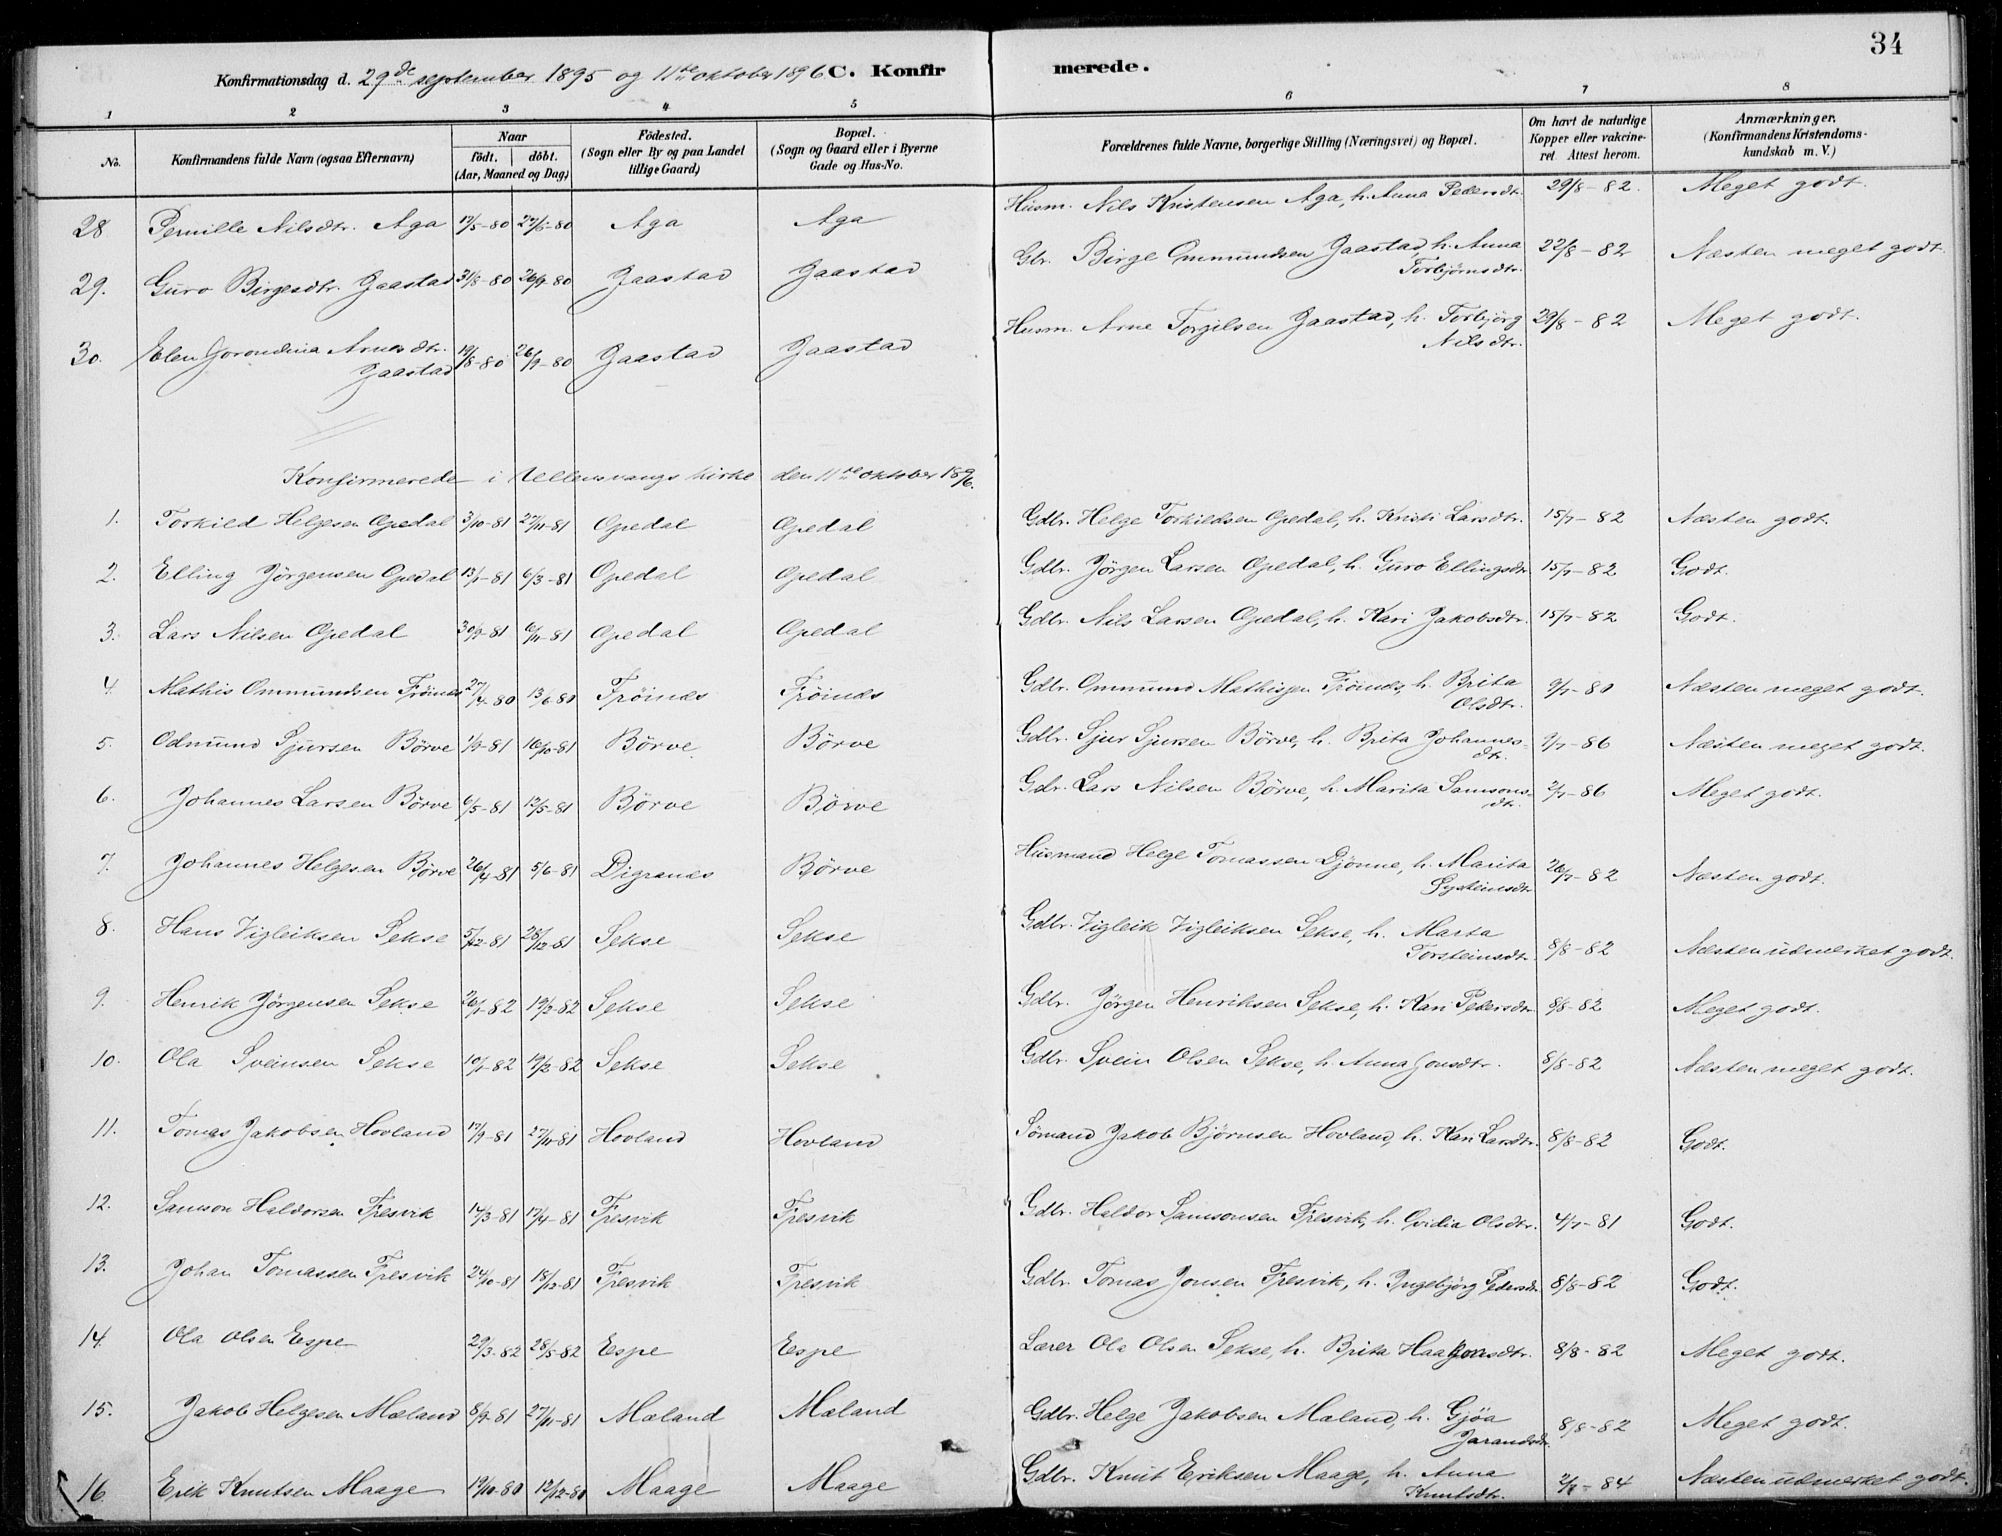 34
Konfirmationsdag d. 29de september 1895 og 11te oktober 1896 C. Konfirmerede.
1 2 3 4 5 6 7 8
No. Konfirmandens fulde Navn (ogsaa Efternavn) Naar födt. döbt. (Aar, Maaned og Dag) Födested. (Sogn eller By og paa Landet tillige Gaard) Bopæl. (Sogn og Gaard eller i Byerne Gade og Hus-No. Forældrenes fulde Navne, borgerlige Stilling (Næringsvei) og Bopæl. Om havt de naturlige Kopper eller vakcineret Attest herom. Anmærkninger. (Konfirmandens Kristendomskundskab m. V.)
28 Pernille Nilsdtr. Aga 12/5-80 27/6-80 Aga Aga Husm. Nils Kristensen Aga, h. Anna Pedersdtr. 29/8-82. Meget godt.
29. Guro Birgesdtr. Jaastad 31/8-80 26/9-80 Jaastad Jaastad Gbr. Birge Ommundsen Jaastad, h. Anna Torbjørnsdtr. 22/8-82 Næsten meget godt.
30. Elen Gorondina Arnesdtr. Jaastad 19/8-80 26/9-80 Jaastad Jaastad Husm. Arne Torgilsen Jaastad, h. Torbjörg Nilsdtr. 29/8-82 Meget godt.
Konfirmerede i Ullensvangs kirke den 11te oktober 1896.
1. Torkild Helgesen Opedal 3/10-81 27/11-81 Opedal Opedal Gdbr. Helge Torkildsen Opedal, h. Kristi Larsdtr. 15/7-82 Næsten godt.
2. Elling Jörgensen Opedal 13/1-81 6/3-81 Opedal Opedal Gdbr. Jörgen Larsen Opedal, h. Guro Ellingsdtr. 15/7-82 Godt.
3. Lars Nilsen Opedal 30/9-81 6/11-81 Opedal Opedal Gdbr. Nils Larsen Opedal, h. Kari Jakobsdtr. 15/7-82 Godt.
4. Mathis Ommundsen Fröinæs 27/4-80 13/6-80 Fröinæs Fröinæs Gdbr. Ommund Mathisen Fröinæs, h. Brita Olsdtr. 9/7-80 Næsten meget godt.
5. Odmund Sjursen Börve 1/9-81 16/10-81 Börve Börve Gdbr. Sjur Sjursen Börve, h. Brita Johannesdtr. 9/7-86 Næsten meget godt.
6. Johannes Larsen Börve 6/5-81 12/5-81 Börve Börve Gdbr. Lars Nilsen Börve, h. Marita Samsonsdtr. 2/7-86 Meget godt.
7. Johannes Helgesen Börve 26/4-81 5/6-81 Digranæs Börve Husmand Helge Tomassen Djönne, h. Marita Systeinsdtr 26/7-82 Næsten godt.
8. Hans Vigleiksen Sekse 5/12-81 28/12-81 Sekse Sekse Gdbr. Vigleik Vigleiksen Sekse, h. Marta Torsteinsdtr. 8/8-82 Næsten udmerket godt.
9. Henrik Jörgensen Sekse 26/1-82 19/2-82 Sekse Sekse Gdbr. Jörgen Henriksen Sekse, h. Kari Pedersdtr. 8/8-82 Meget godt.
10. Ola Sveinsen Sekse 10/1-82 19/2-82 Sekse Sekse Gdbr. Svein Olsen Sekse, h. Anna Jonsdtr. 8/8-82 Næsten meget godt.
11. Tomas Jakobsen Hovland 17/9-81 27/11-81 Hovland Hovland Sömand Jakob Björnsen Hovland, h. Kari Larsdtr. 8/8-82 Godt.
12. Samson Haldorsen Fresvik 14/3-81 17/4-81 Fresvik Fresvik Gdbr. Haldor Samsonsen Fresvik, h. Ovidia Olsdtr. 4/7-81 Godt.
13. Johan Tomassen Fresvik 24/10-81 18/12-81 Fresvik Fresvik Gdbr. Tomas Jonsen Fresvik, h. Ingebjörg Pedersdtr. 8/8-82 Godt.
14. Ola Olsen Espe 29/3-82 28/5-82 Espe Espe Lærer Ola Olsen Sekse, h. Brita Haakonsdtr. 8/8-82 Meget godt.
15. Jakob Helgesen Mæland 8/9-81 27/11-81 Mæland Mæland Gdbr. Helge Jakobsen Mæland, h. Gjöa Jarandsdtr. 8/8-82 Meget godt.
16. Erik Knutsen Maage 19/10-80 12/12-80 Maage Maage Gdbr. Knut Eriksen Maage, h. Anna Knutsdtr. 2/7-84 Næsten udmerket godt.